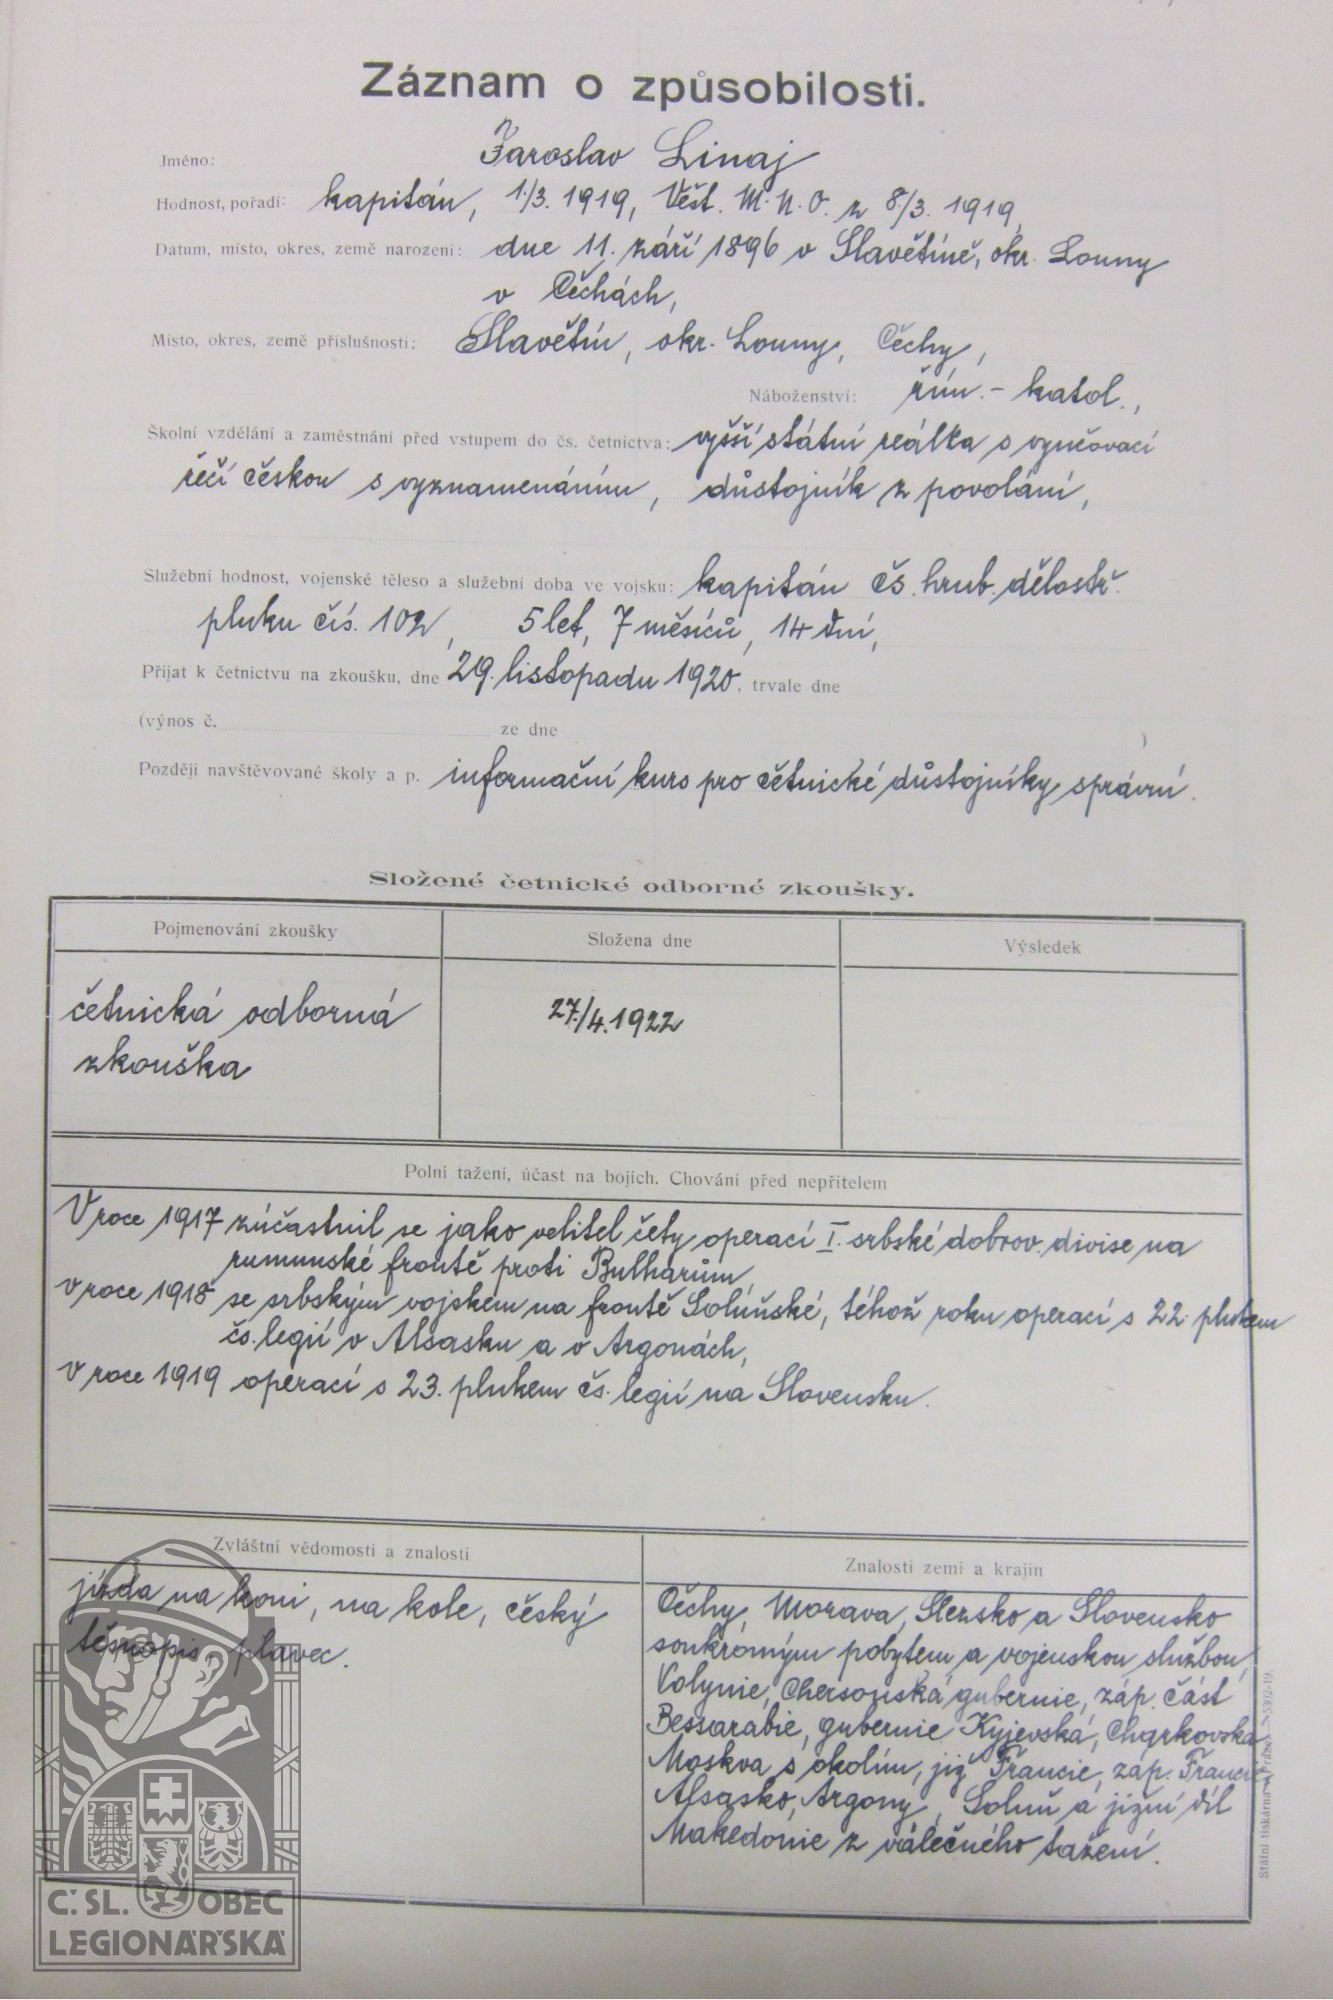 Záznam o způsobilosti.
Jméno: Jaroslav Linaj
Hodnost, pořadí: kapitán, 1./3. 1919, Věst. M.N.O. z 8./3. 1919,
Datum, místo, okres, země narození: dne 11. září 1896 v Slavětíně, okr. Louny
v Čechách,
Místo, okres, země příslušnosti: Slavětín, okr. Louny, Čechy,
Náboženství: řím.-katol.,
Školní vzdělání a zaměstnání před vstupem do čs. četnictva: vyšší státní reálka s vyučovací
řečí českou s vyznamenáním, důstojník z povolání,
Služební hodnost, vojenské těleso a služební doba ve vojsku: kapitán čs. hrub. dělostř.
pluku čís. 102, 5 let, 7 měsíců, 14 dní,
Přijat k četnictvu na zkoušku, dne 29. listopadu 1920, trvale dne
(výnos č. ze dne )
Později navštěvované školy a p. informační kurs pro četnické důstojníky správní.
Složené četnické odborné zkoušky.
Pojmenování zkoušky Složena dne Výsledek
četnická odborná 27./4. 1922
zkouška
Polní tažení, účast na bojích. Chování před nepřítelem
V roce 1917 zúčastnil se jako velitel čety operací I. srbské dobrov. divise na
rumunské frontě proti Bulharům,
v roce 1918 se srbským vojskem na frontě Solúňské, téhož roku operací s 22. plukem
čs. legií v Alsasku a v Argonách,
v roce 1919 operací s 23. plukem čs. legií na Slovensku.
Zvláštní vědomosti a znalosti
jízda na koni, na kole, český
těsnopis, plavec.
Znalosti zemí a krajin
Čechy, Morava, Slezsko a Slovensko
soukromým pobytem a vojenskou službou,
Volynie, Chersonská gubernie, záp. část
Bessarabie, gubernie Kyjevská, Charkovská
Moskva s okolím, již. Francie, záp. Francie
Alsasko, Argony, Soluň a jižní díl
Makedonie z válečného tažení.
Státní tiskárna v Praze. 5302-19.
Č. SL. OBEC
LEGIONÁŘSKÁ